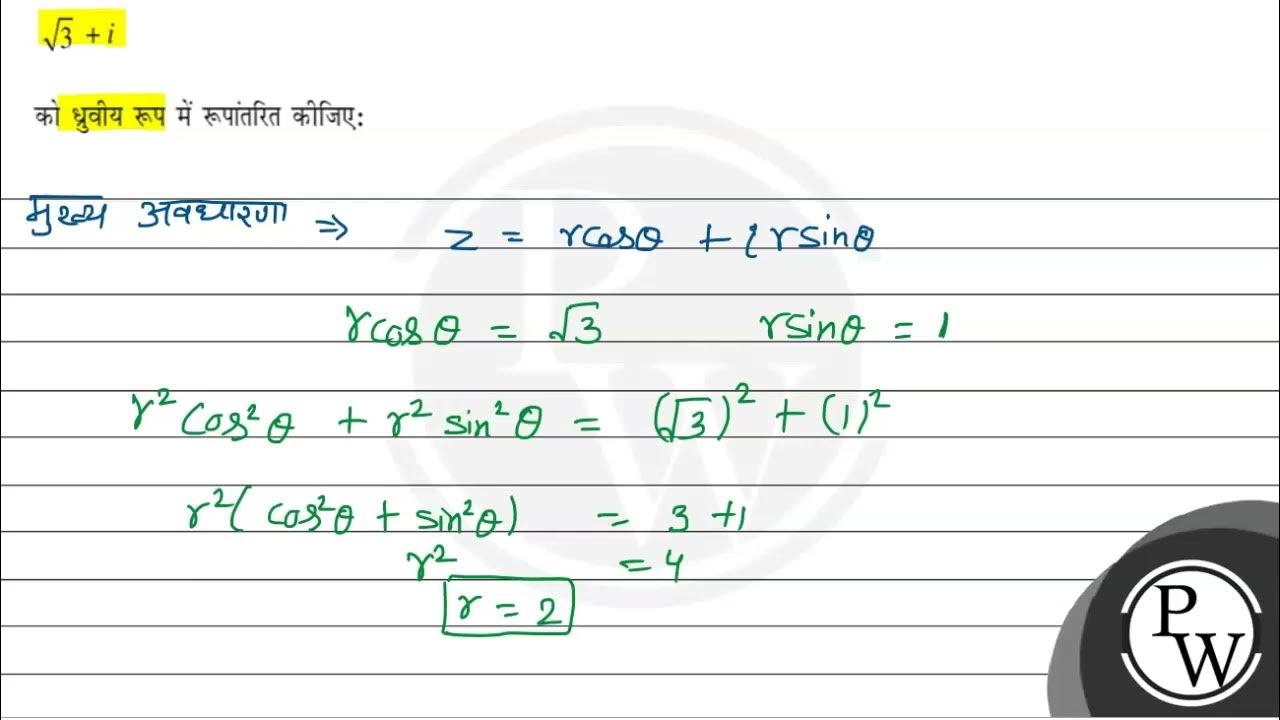 √3 + i
को ध्रुवीय रूप में रूपांतरित कीजिए:
मुख्य अवधारणा ⇒ z = rcosθ + i rsinθ
rcosθ = √3 rsinθ = 1
r² cos²θ + r² sin²θ = (√3)² + (1)²
r²(cos²θ + sin²θ) = 3 + 1
r² = 4
r = 2
P
W
P
W